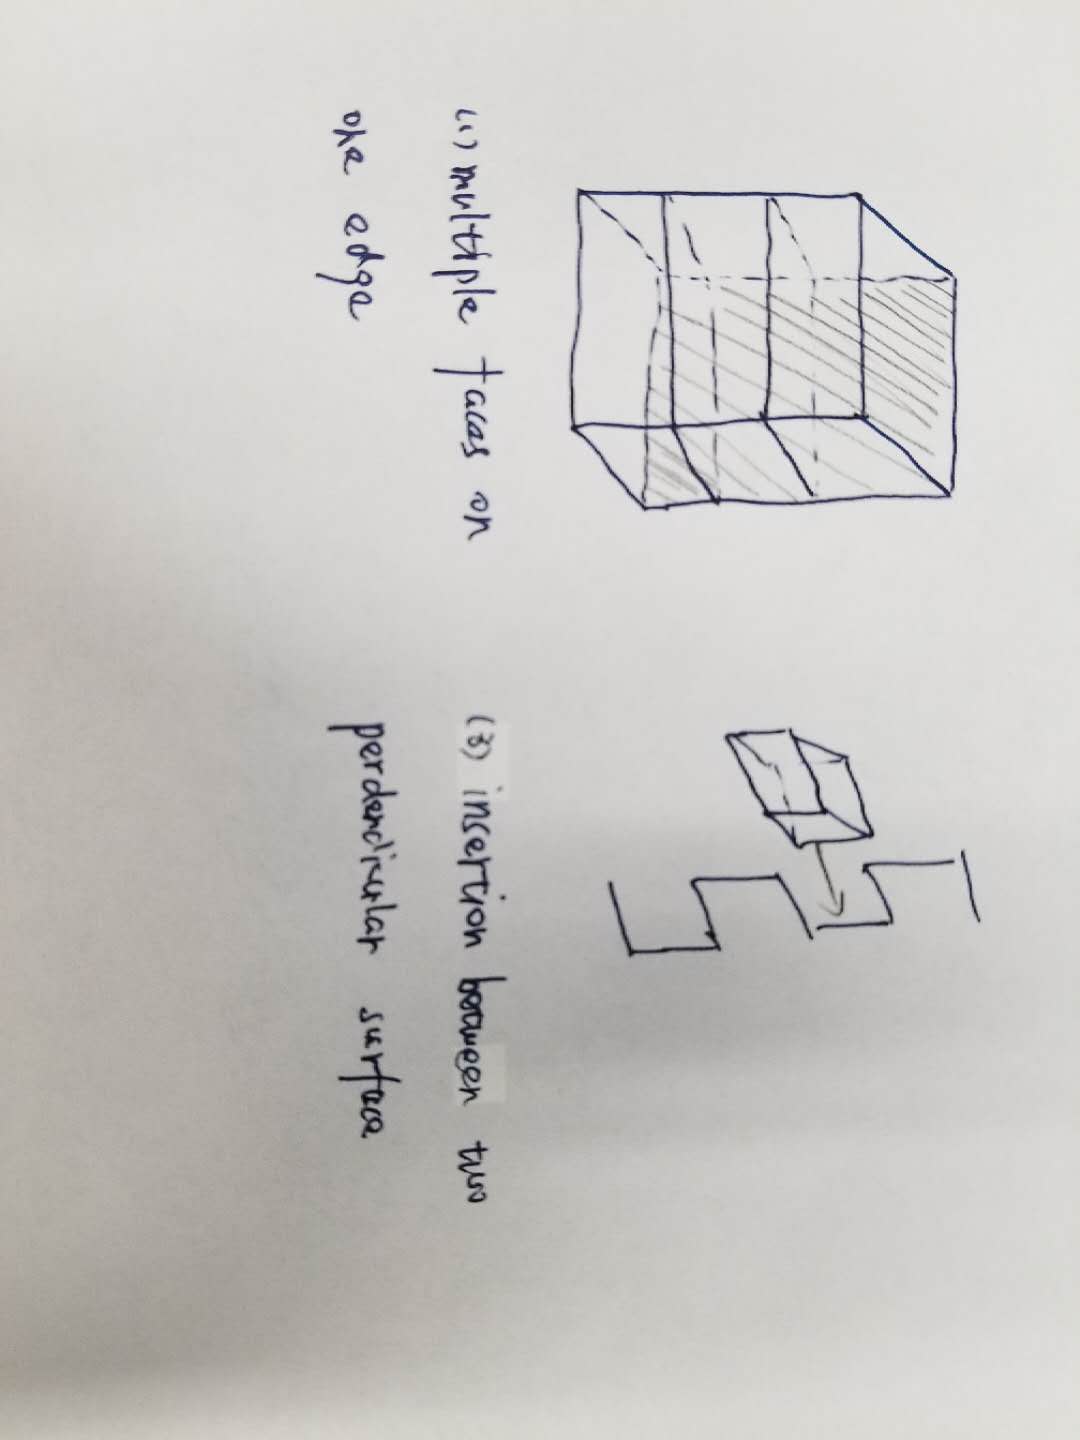 (1) multiple faces on
one edge
(3) insertion between two
perdendicular surface